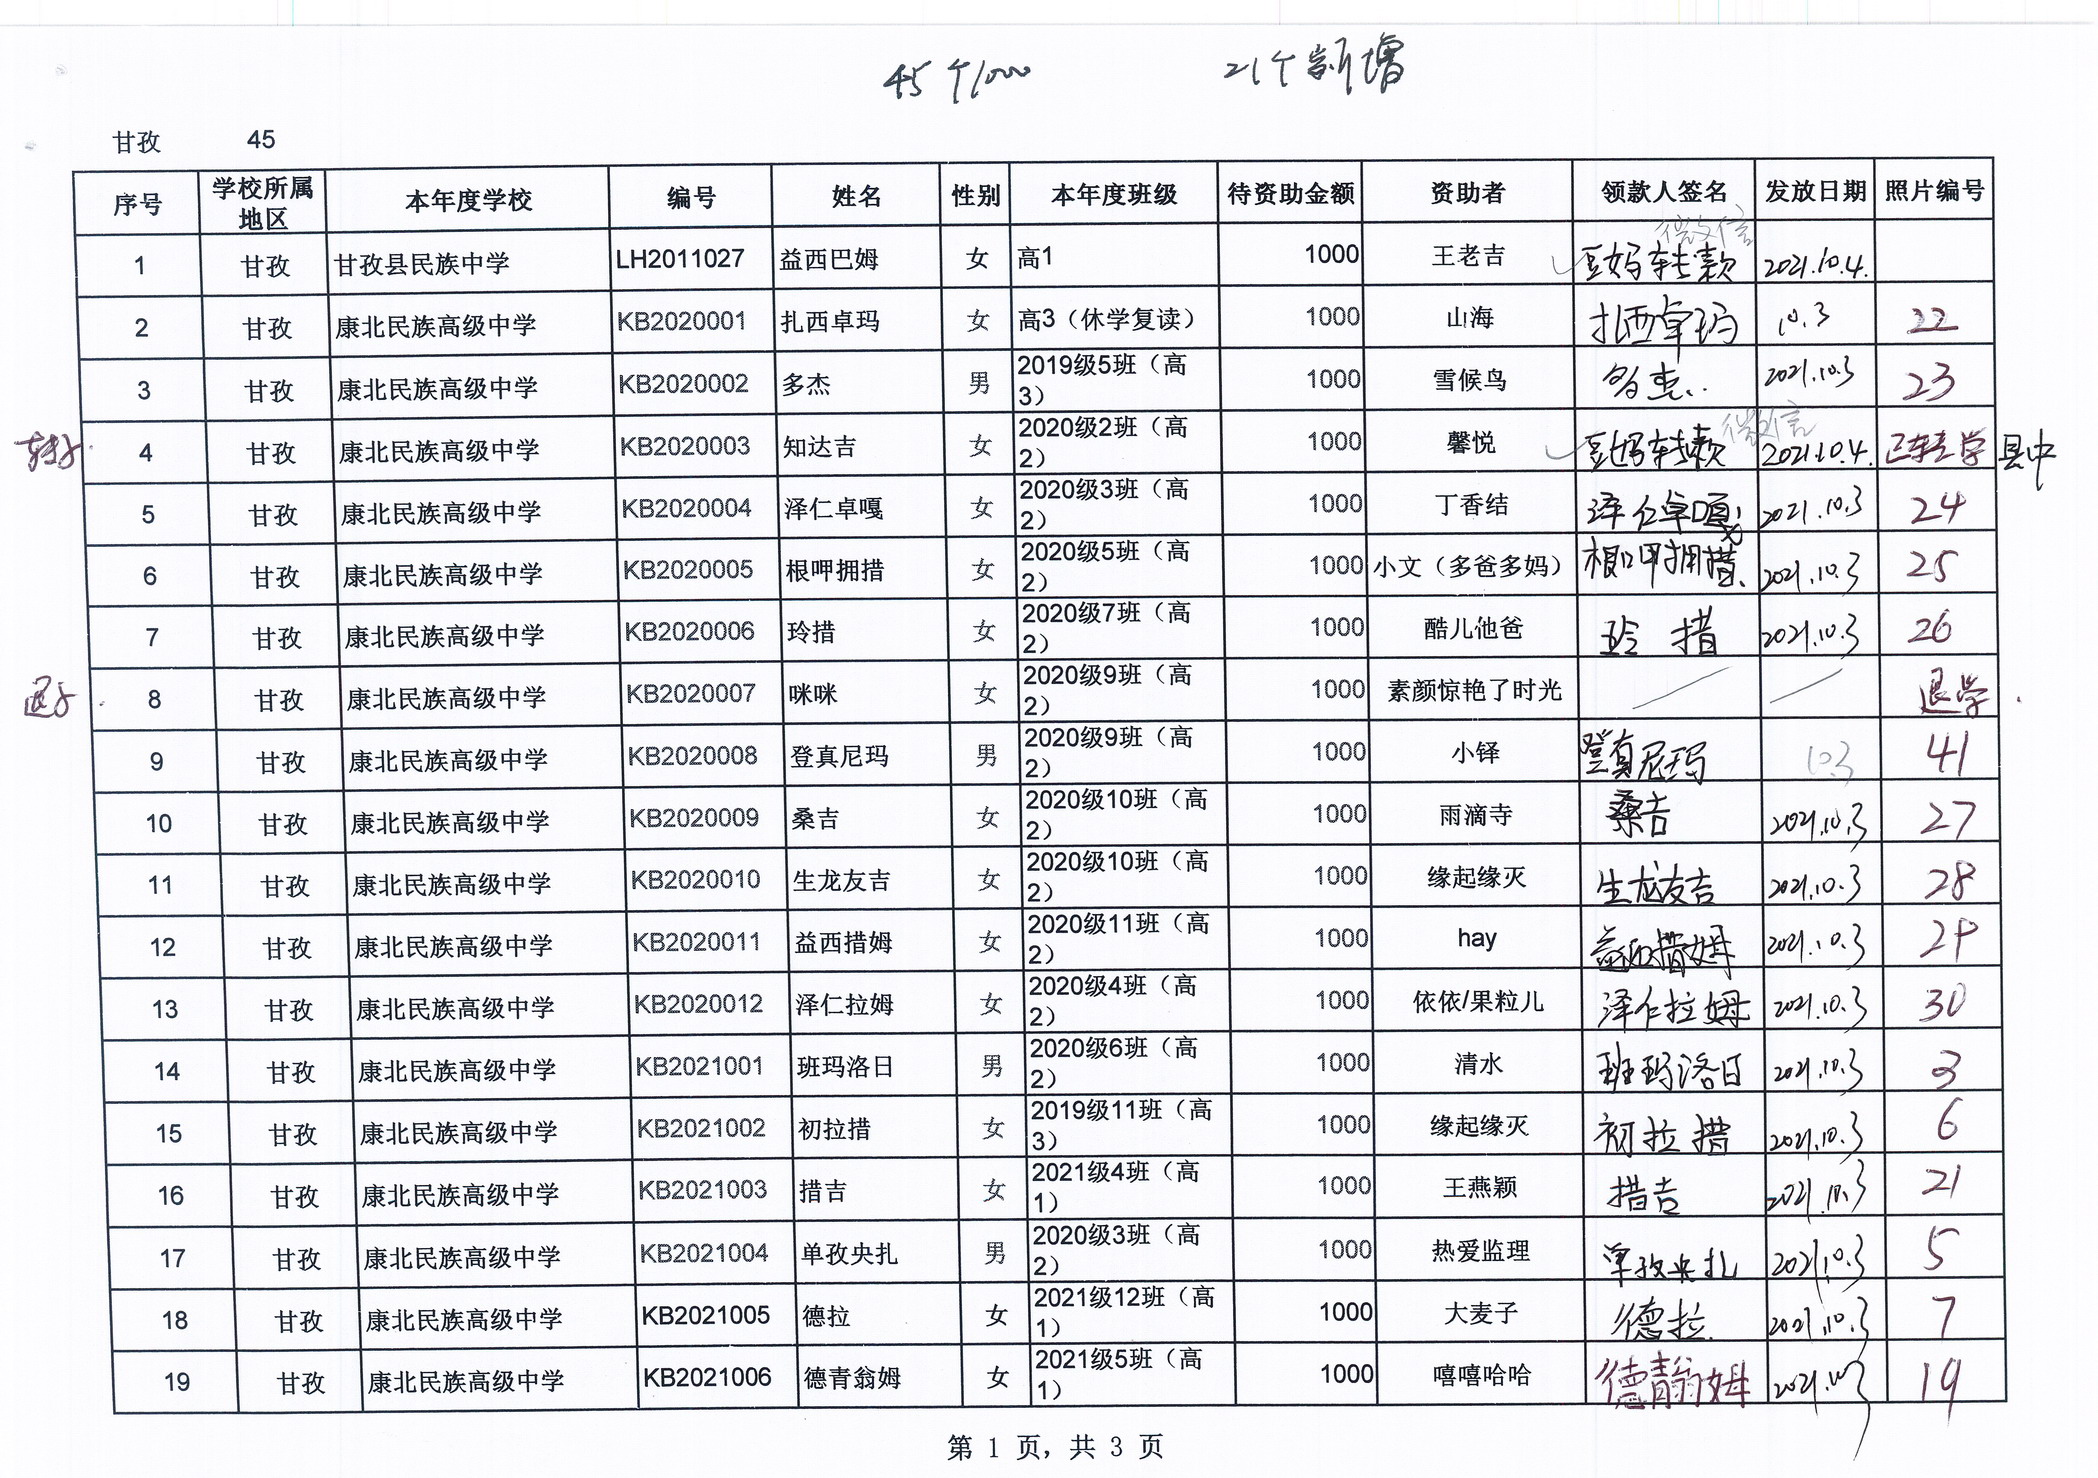 45个1000 21个新增
甘孜 45
序号 学校所属地区 本年度学校 编号 姓名 性别 本年度班级 待资助金额 资助者 领款人签名 发放日期 照片编号
1 甘孜 甘孜县民族中学 LH2011027 益西巴姆 女 高1 1000 王老吉 豆妈转款 微信 2021.10.4.
2 甘孜 康北民族高级中学 KB2020001 扎西卓玛 女 高3（休学复读） 1000 山海 扎西卓玛 10.3 22
3 甘孜 康北民族高级中学 KB2020002 多杰 男 2019级5班（高3） 1000 雪候鸟 多杰 2021.10.3 23
转学 4 甘孜 康北民族高级中学 KB2020003 知达吉 女 2020级2班（高2） 1000 馨悦 豆妈转款 微信 2021.10.4. 已转学 县中
5 甘孜 康北民族高级中学 KB2020004 泽仁卓嘎 女 2020级3班（高2） 1000 丁香结 泽仁卓嘎 2021.10.3 24
6 甘孜 康北民族高级中学 KB2020005 根呷拥措 女 2020级5班（高2） 1000 小文（多爸多妈） 根呷拥措 2021.10.3 25
7 甘孜 康北民族高级中学 KB2020006 玲措 女 2020级7班（高2） 1000 酷儿他爸 玲措 2021.10.3 26
退学 8 甘孜 康北民族高级中学 KB2020007 咪咪 女 2020级9班（高2） 1000 素颜惊艳了时光 退学
9 甘孜 康北民族高级中学 KB2020008 登真尼玛 男 2020级9班（高2） 1000 小铎 登真尼玛 10.3 41
10 甘孜 康北民族高级中学 KB2020009 桑吉 女 2020级10班（高2） 1000 雨滴寺 桑吉 2021.10.3 27
11 甘孜 康北民族高级中学 KB2020010 生龙友吉 女 2020级10班（高2） 1000 缘起缘灭 生龙友吉 2021.10.3 28
12 甘孜 康北民族高级中学 KB2020011 益西措姆 女 2020级11班（高2） 1000 hay 益西措姆 2021.10.3 29
13 甘孜 康北民族高级中学 KB2020012 泽仁拉姆 女 2020级4班（高2） 1000 依依/果粒儿 泽仁拉姆 2021.10.3 30
14 甘孜 康北民族高级中学 KB2021001 班玛洛日 男 2020级6班（高2） 1000 清水 班玛洛日 2021.10.3 3
15 甘孜 康北民族高级中学 KB2021002 初拉措 女 2019级11班（高3） 1000 缘起缘灭 初拉措 2021.10.3 6
16 甘孜 康北民族高级中学 KB2021003 措吉 女 2021级4班（高1） 1000 王燕颖 措吉 2021.10.3 21
17 甘孜 康北民族高级中学 KB2021004 单孜央扎 男 2020级3班（高2） 1000 热爱监理 单孜央扎 2021.10.3 5
18 甘孜 康北民族高级中学 KB2021005 德拉 女 2021级12班（高1） 1000 大麦子 德拉 2021.10.3 7
19 甘孜 康北民族高级中学 KB2021006 德青翁姆 女 2021级5班（高1） 1000 嘻嘻哈哈 德青翁姆 2021.10.3 19
第 1 页，共 3 页